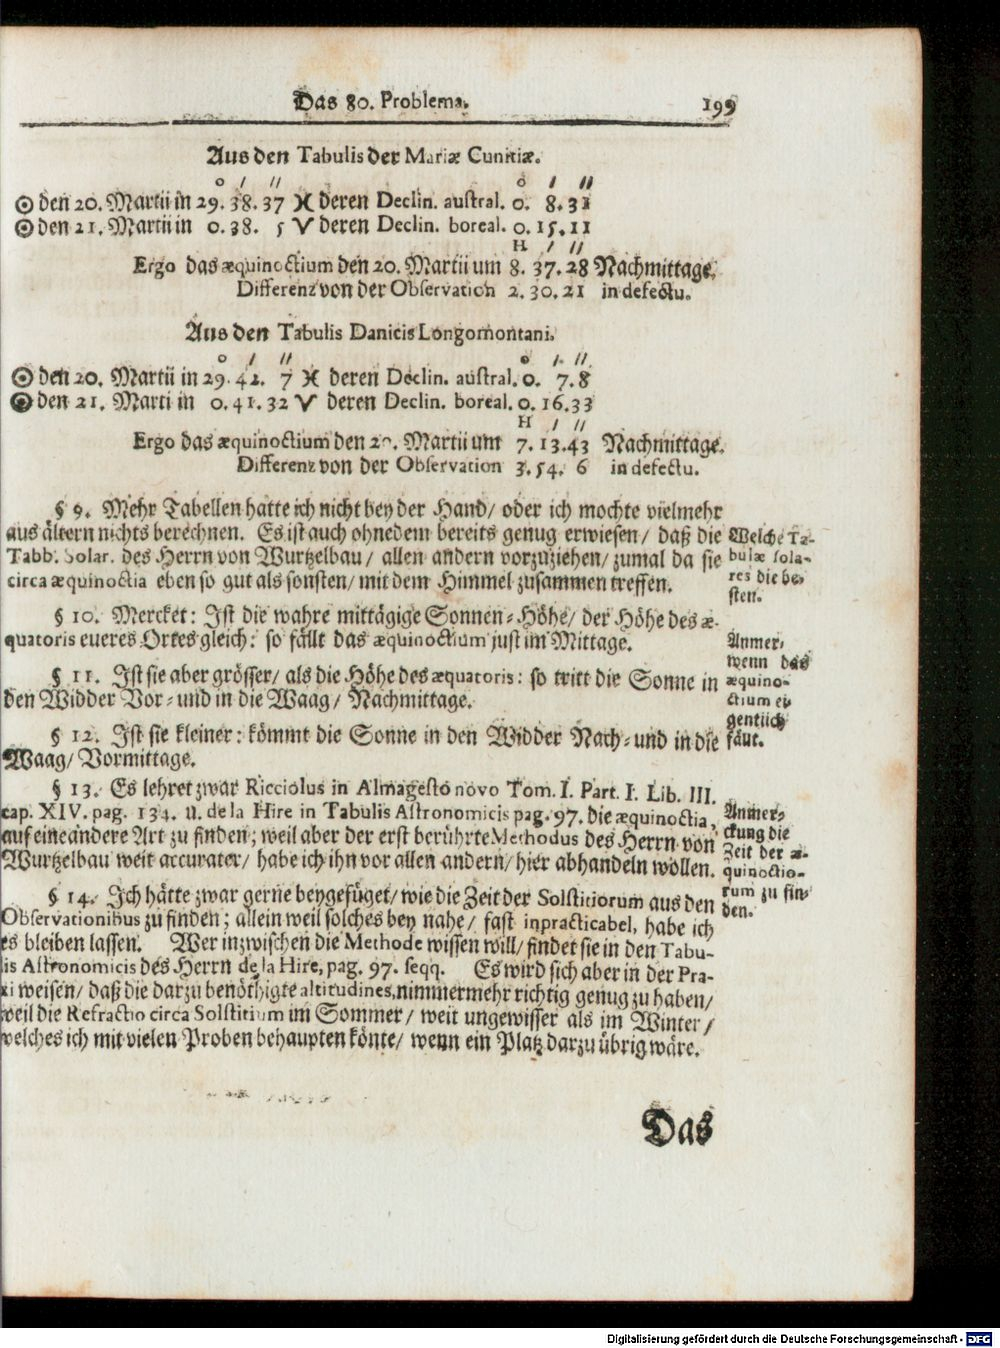 Das 80. Problema. 199
Aus den Tabulis der Mariæ Cunitiæ.
o / //   o / //
☉ den 20. Martii in 29. 38. 37 ♓ deren Declin. austral. 0. 8. 31
☉ den 21. Martii in 0. 38. 5 ♈ deren Declin. boreal. 0. 15. 11
H / //
Ergo das æquinoctium den 20. Martii um 8. 37. 28 Nachmittage.
Differenz von der Observation 2. 30. 21 in defectu.
Aus den Tabulis Danicis Longomontani.
o / //   o / //
☉ den 20. Martii in 29. 42. 7 ♓ deren Declin. austral. 0. 7. 8
☉ den 21. Marti in 0. 41. 32 ♈ deren Declin. boreal. 0. 16. 33
H / //
Ergo das æquinoctium den 20. Martii um 7. 13. 43 Nachmittage.
Differenz von der Observation 3. 54. 6 in defectu.
§ 9. Mehr Tabellen hatte ich nicht bey der Hand/ oder ich mochte vielmehr
aus ältern nichts berechnen. Es ist auch ohnedem bereits genug erwiesen/ daß die
Tabb. Solar. des Herrn von Wurtzelbau/ allen andern vorzuziehen/ zumal da sie
circa æquinoctia eben so gut als sonsten/ mit dem Himmel zusammen treffen.
Welche Ta-
bulæ sola-
res die be-
sten.
§ 10. Mercket: Ist die wahre mittägige Sonnen-Höhe/ der Höhe des æ-
quatoris eueres Ortes gleich: so fällt das æquinoctium just im Mittage.
§ 11. Ist sie aber grösser/ als die Höhe des æquatoris: so tritt die Sonne in
den Widder Vor- und in die Waag/ Nachmittage.
§ 12. Ist sie kleiner: kömmt die Sonne in den Widder Nach- und in die
Waag/ Vormittage.
Anmer,
wenn das
æquino-
ctium ei-
gentlich
fäut.
§ 13. Es lehret zwar Ricciolus in Almagesto novo Tom. I. Part. I. Lib. III.
cap. XIV. pag. 134. u. de la Hire in Tabulis Astronomicis pag. 97. die æquinoctia,
auf eine andere Art zu finden; weil aber der erst berührte Methodus des Herrn von
Wurtzelbau weit accurater/ habe ich ihn vor allen andern/ hier abhandeln wollen.
Anmer-
ckung die
Zeit der æ-
quinoctio-
rum zu fin-
den.
§ 14. Ich hätte zwar gerne beygefüget/ wie die Zeit der Solstitiorum aus den
Observationibus zu finden; allein weil solches bey nahe/ fast inpracticabel, habe ich
es bleiben lassen. Wer inzwischen die Methode wissen will/ findet sie in den Tabu-
lis Astronomicis des Herrn de la Hire, pag. 97. seqq. Es wird sich aber in der Pra-
xi weisen/ daß die darzu benöthigte altitudines, nimmermehr richtig genug zu haben/
weil die Refractio circa Solstitium im Sommer/ weit ungewisser als im Winter/
welches ich mit vielen Proben behaupten könte/ wenn ein Platz darzu übrig wäre.
Das
Digitalisierung gefördert durch die Deutsche Forschungsgemeinschaft - DFG